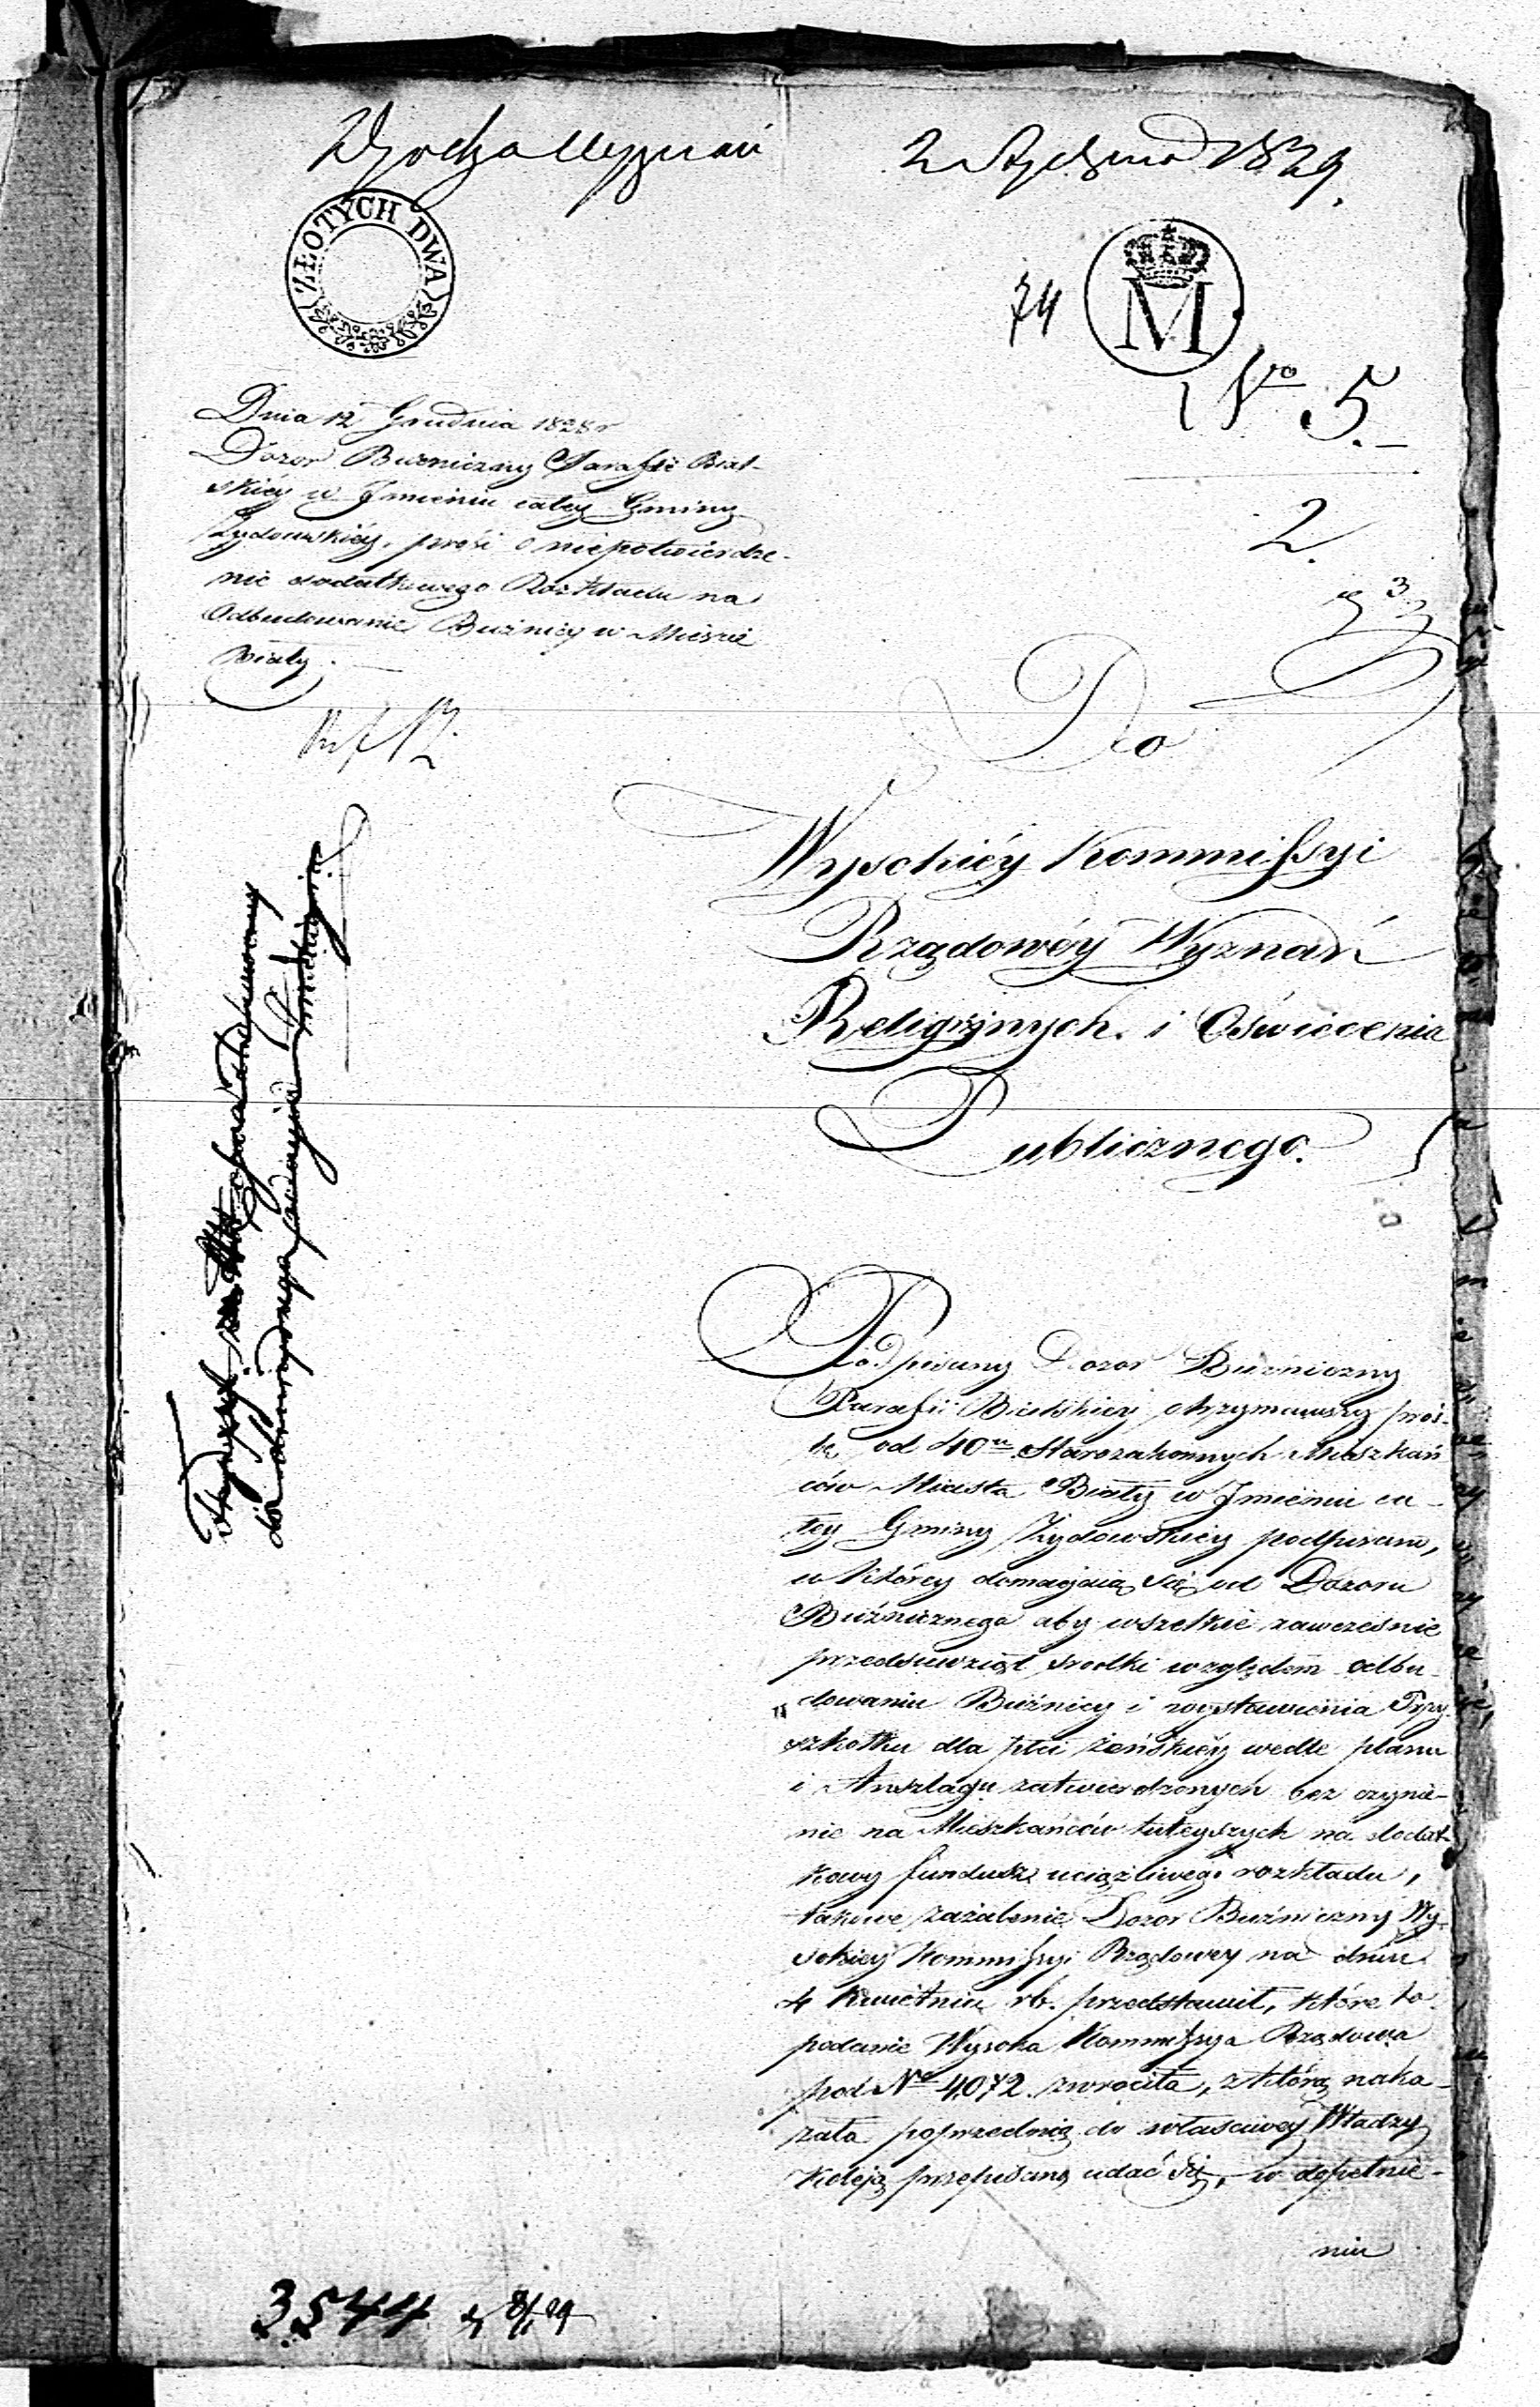 2 Stycznia 1829.
ZŁOTYCH DWA
74
M
No 5.
2.
Dnia 12 Grudnia 1828 r
Dozor Bużniczny Parafii Bial-
skiéy w Jmieniu całey Gminy
Żydowskiéy, prosi o niepotwierdze-
nie dodatkowego Rozkładu na
Odbudowanie Bużnicy w Mieście
Biały.
Do
Wysokiéy Kommissyi
Rządowéy Wyznań
Religijnych i Oświécenia
Publicznego.
Podpisany Dozor Bużniczny
Parafii Bialskiey otrzymawszy proź-
bę od 40u Starozakonnych Mieszkań
ców Miasta Biały w Jmieniu ca-
łey Gminy Żydowskiéy podpisaną,
w którey domagaią się od Dozoru
Bużnicznego aby wszelkie zawcześnie
przedsięwziął srodki względem odbu-
dowaniu Bużnicy i wystawienia Przy
szkołku dla płci żeńskiéy wedle planu
i Anszlagu zatwierdzonych bez czynie-
nie na Mieszkańców tuteyszych na dodat-
kowy fundusz uciążliwego rozkładu,
takowe zażalenie Dozor Bużniczny Wy-
sokiey Kommissyi Rządowey na dniu
4 Kwietnia rb. przedstawił, które to
podanie Wysoka Kommissya Rządowa
pod No 4,072. zwrociła, z którą naka-
zała poprzednią do właściwey Władzy
koleją przepisaną udać się, w dopełnie-
niu
3544